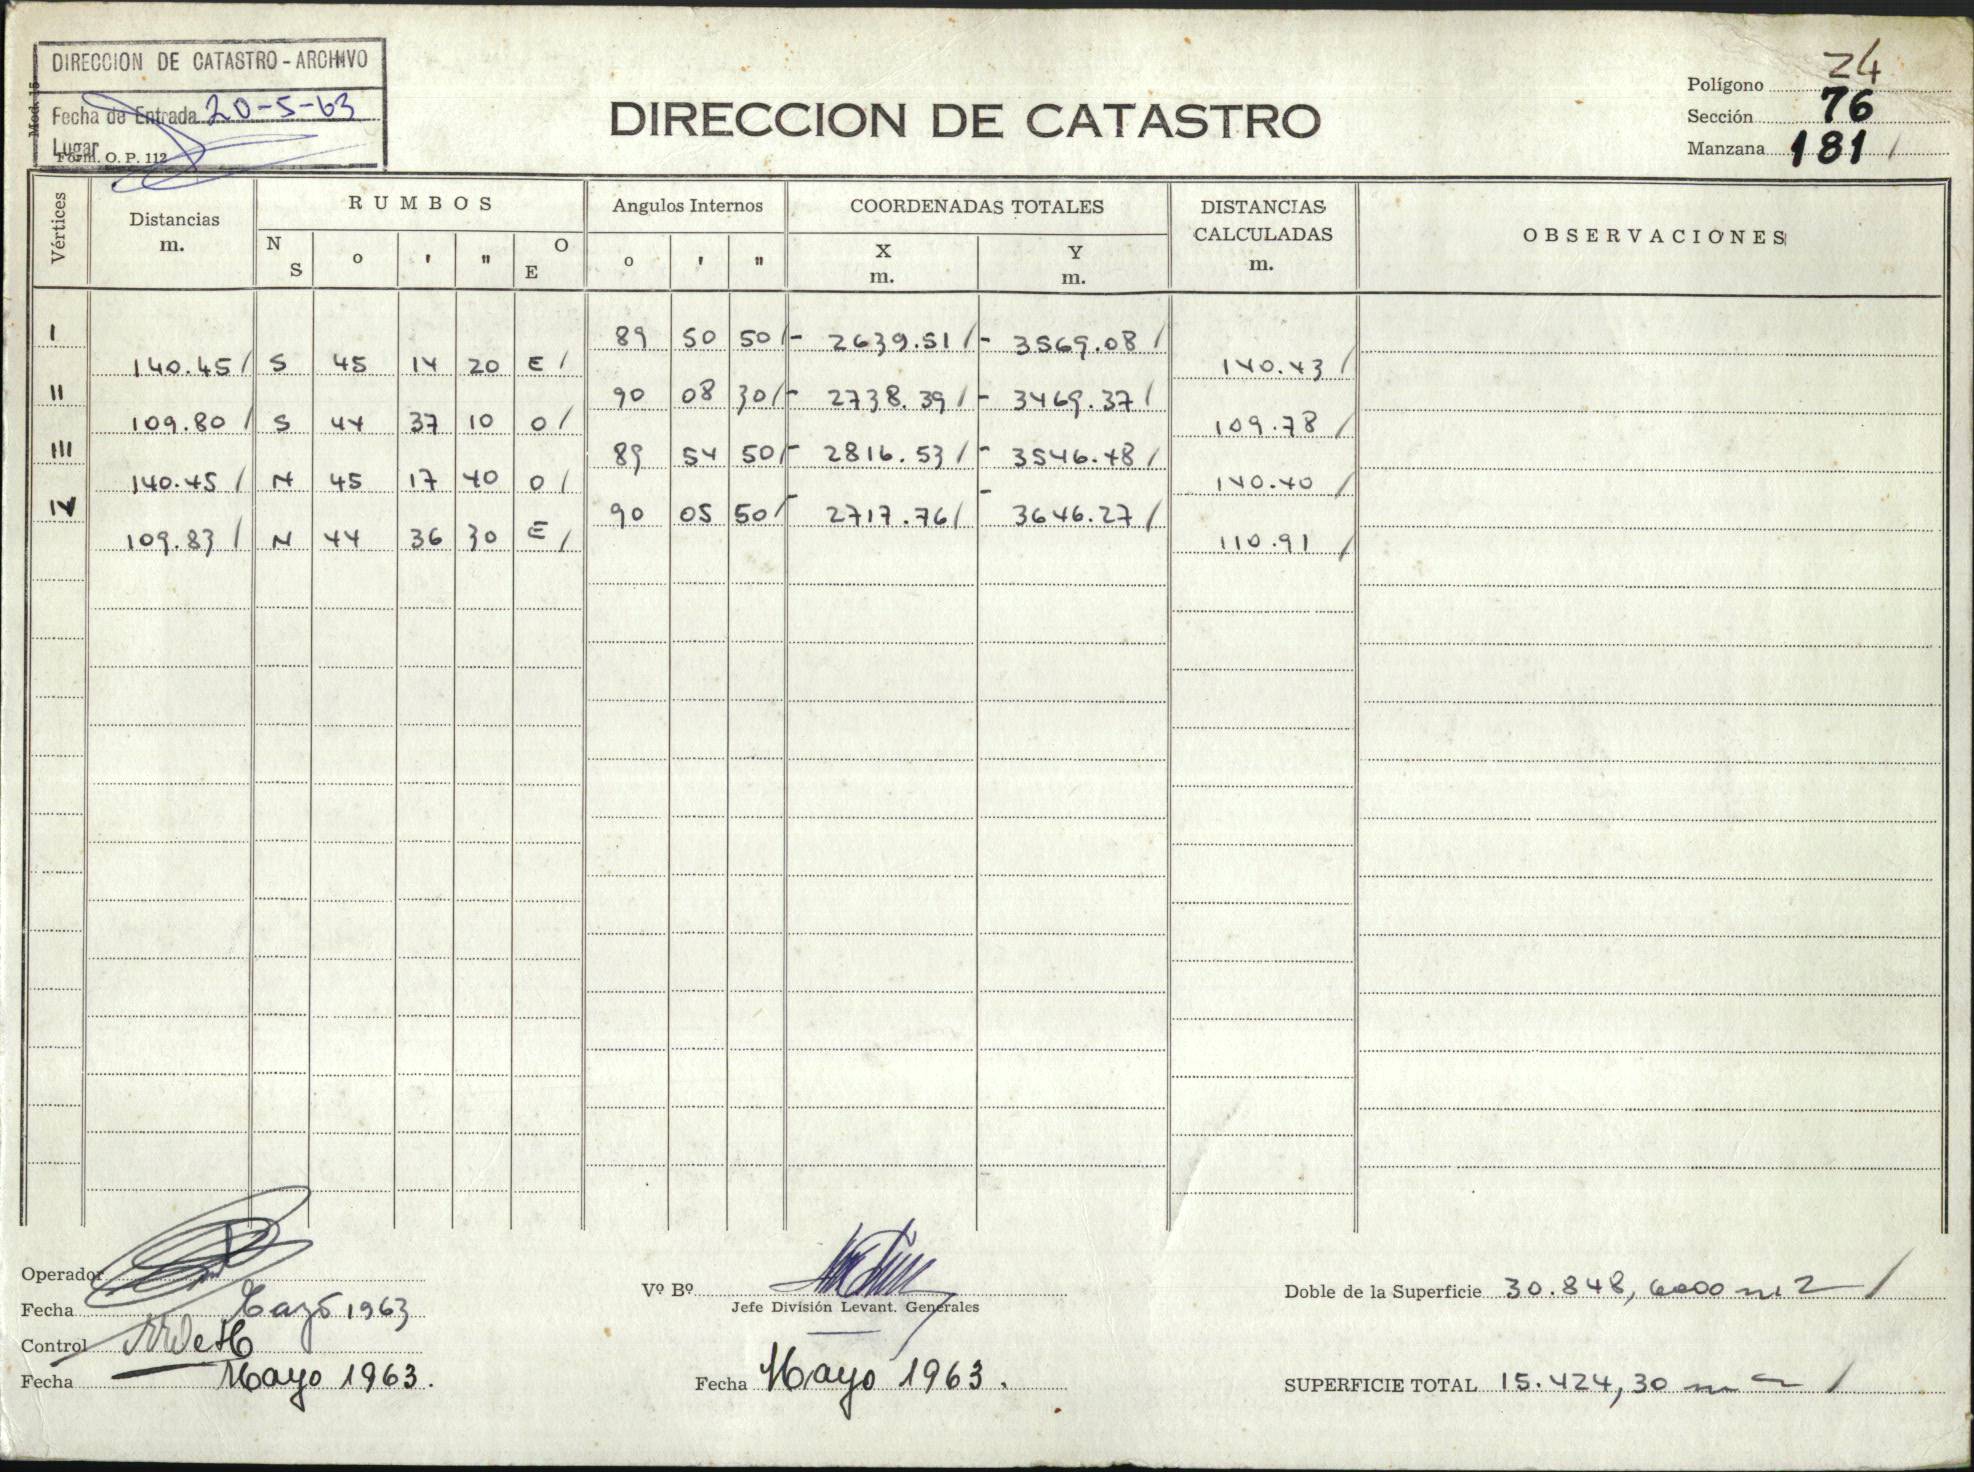 DIRECCION DE CATASTRO - ARCHIVO
Mod. 15
Fecha de Entrada 20-5-63
Lugar
Form. O. P. 112
DIRECCION DE CATASTRO
Polígono 24
Sección 76
Manzana 181 /
Vértices
Distancias
m.
RUMBOS
N
S
o
'
"
O
E
Angulos Internos
o ' "
COORDENADAS TOTALES
X
m.
Y
m.
DISTANCIAS
CALCULADAS
m.
OBSERVACIONES
I 89 50 50 / - 2639.51 / - 3569.08 /
140.45 / S 45 14 20 E / 140.43 /
II 90 08 30 / - 2738.39 / - 3469.37 /
109.80 / S 44 37 10 O / 109.78 /
III 89 54 50 / - 2816.53 / - 3546.48 /
140.45 / N 45 17 40 O / 140.40 /
IV 90 05 50 / - 2717.76 / - 3646.27 /
109.83 / N 44 36 30 E / 110.91 /
Operador
Fecha Mayo 1963
Control
Fecha Mayo 1963.
Vº Bº
Jefe División Levant. Generales
Fecha Mayo 1963.
Doble de la Superficie 30.848,6000 m2 /
SUPERFICIE TOTAL 15.424,30 m2 /